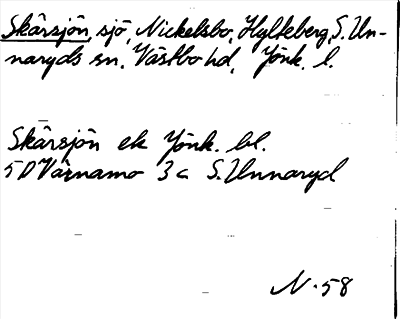 Skärsjön, sjö, Nickelsbo, Hylteberg, S. Un-
naryds sn, Västbo hd, Jönk. l.
Skärsjön ek Jönk. bl.
5D Värnamo 3c S. Unnaryd
N. 58